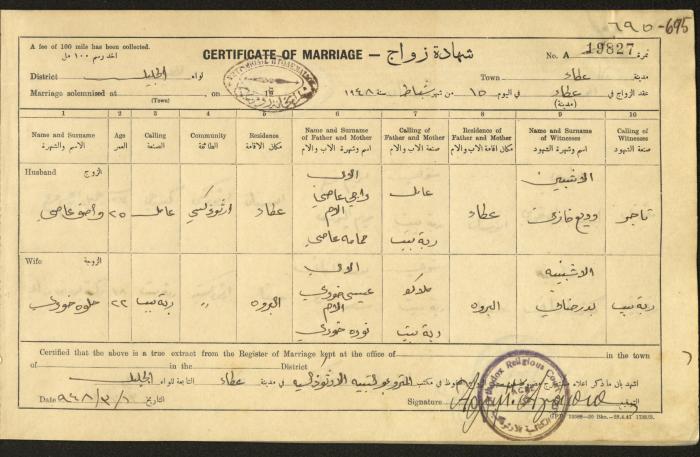 ٦٩٥-695
A fee of 100 mils has been collected.
اخذ رسم ١٠٠ مل
CERTIFICATE OF MARRIAGE — شهادة زواج
No. A 19827 نمرة
District لواء الجليل
Town مدينة عكاء
Marriage solemnised at (Town) on 19
عقد الزواج في عكاء (مدينة) في اليوم ١٥ من شهر شباط سنة ١٩٤٨
1 2 3 4 5 6 7 8 9 10
Name and Surname الاسم والشهرة
Age العمر
Calling الصنعة
Community الطائفة
Residence مكان الاقامة
Name and Surname of Father and Mother اسم وشهرة الاب والام
Calling of Father and Mother صنعة الاب والام
Residence of Father and Mother مكان اقامة الاب والام
Name and Surname of Witnesses اسم وشهرة الشهود
Calling of Witnesses صنعة الشهود
Husband الزوج
واصف عاصي
٢٥
عامل
ارثوذكسي
عكاء
الاب
راجي عاصي
الام
حمامه عاصي
عامل
ربة بيت
عكاء
الاشبين
وديع خازن
تاجر
Wife الزوجة
حلوه خوري
٢٢
ربة بيت
〃
البروه
الاب
عيسى خوري
الام
خوري
ملاك
ربة بيت
البروه
الاشبينه
بدر
ربة بيت
Certified that the above is a true extract from the Register of Marriage kept at the office of in the town
of in the District
اشهد بان ما ذكر اعلاه في مكتب المتروبوليتيه الارثوذكسيه في مدينة عكاء التابعة للواء الجليل
Date ٩٤٨/٣/١ التاريخ
Signature التوقيع
Orthodox Religious Court
ACRE